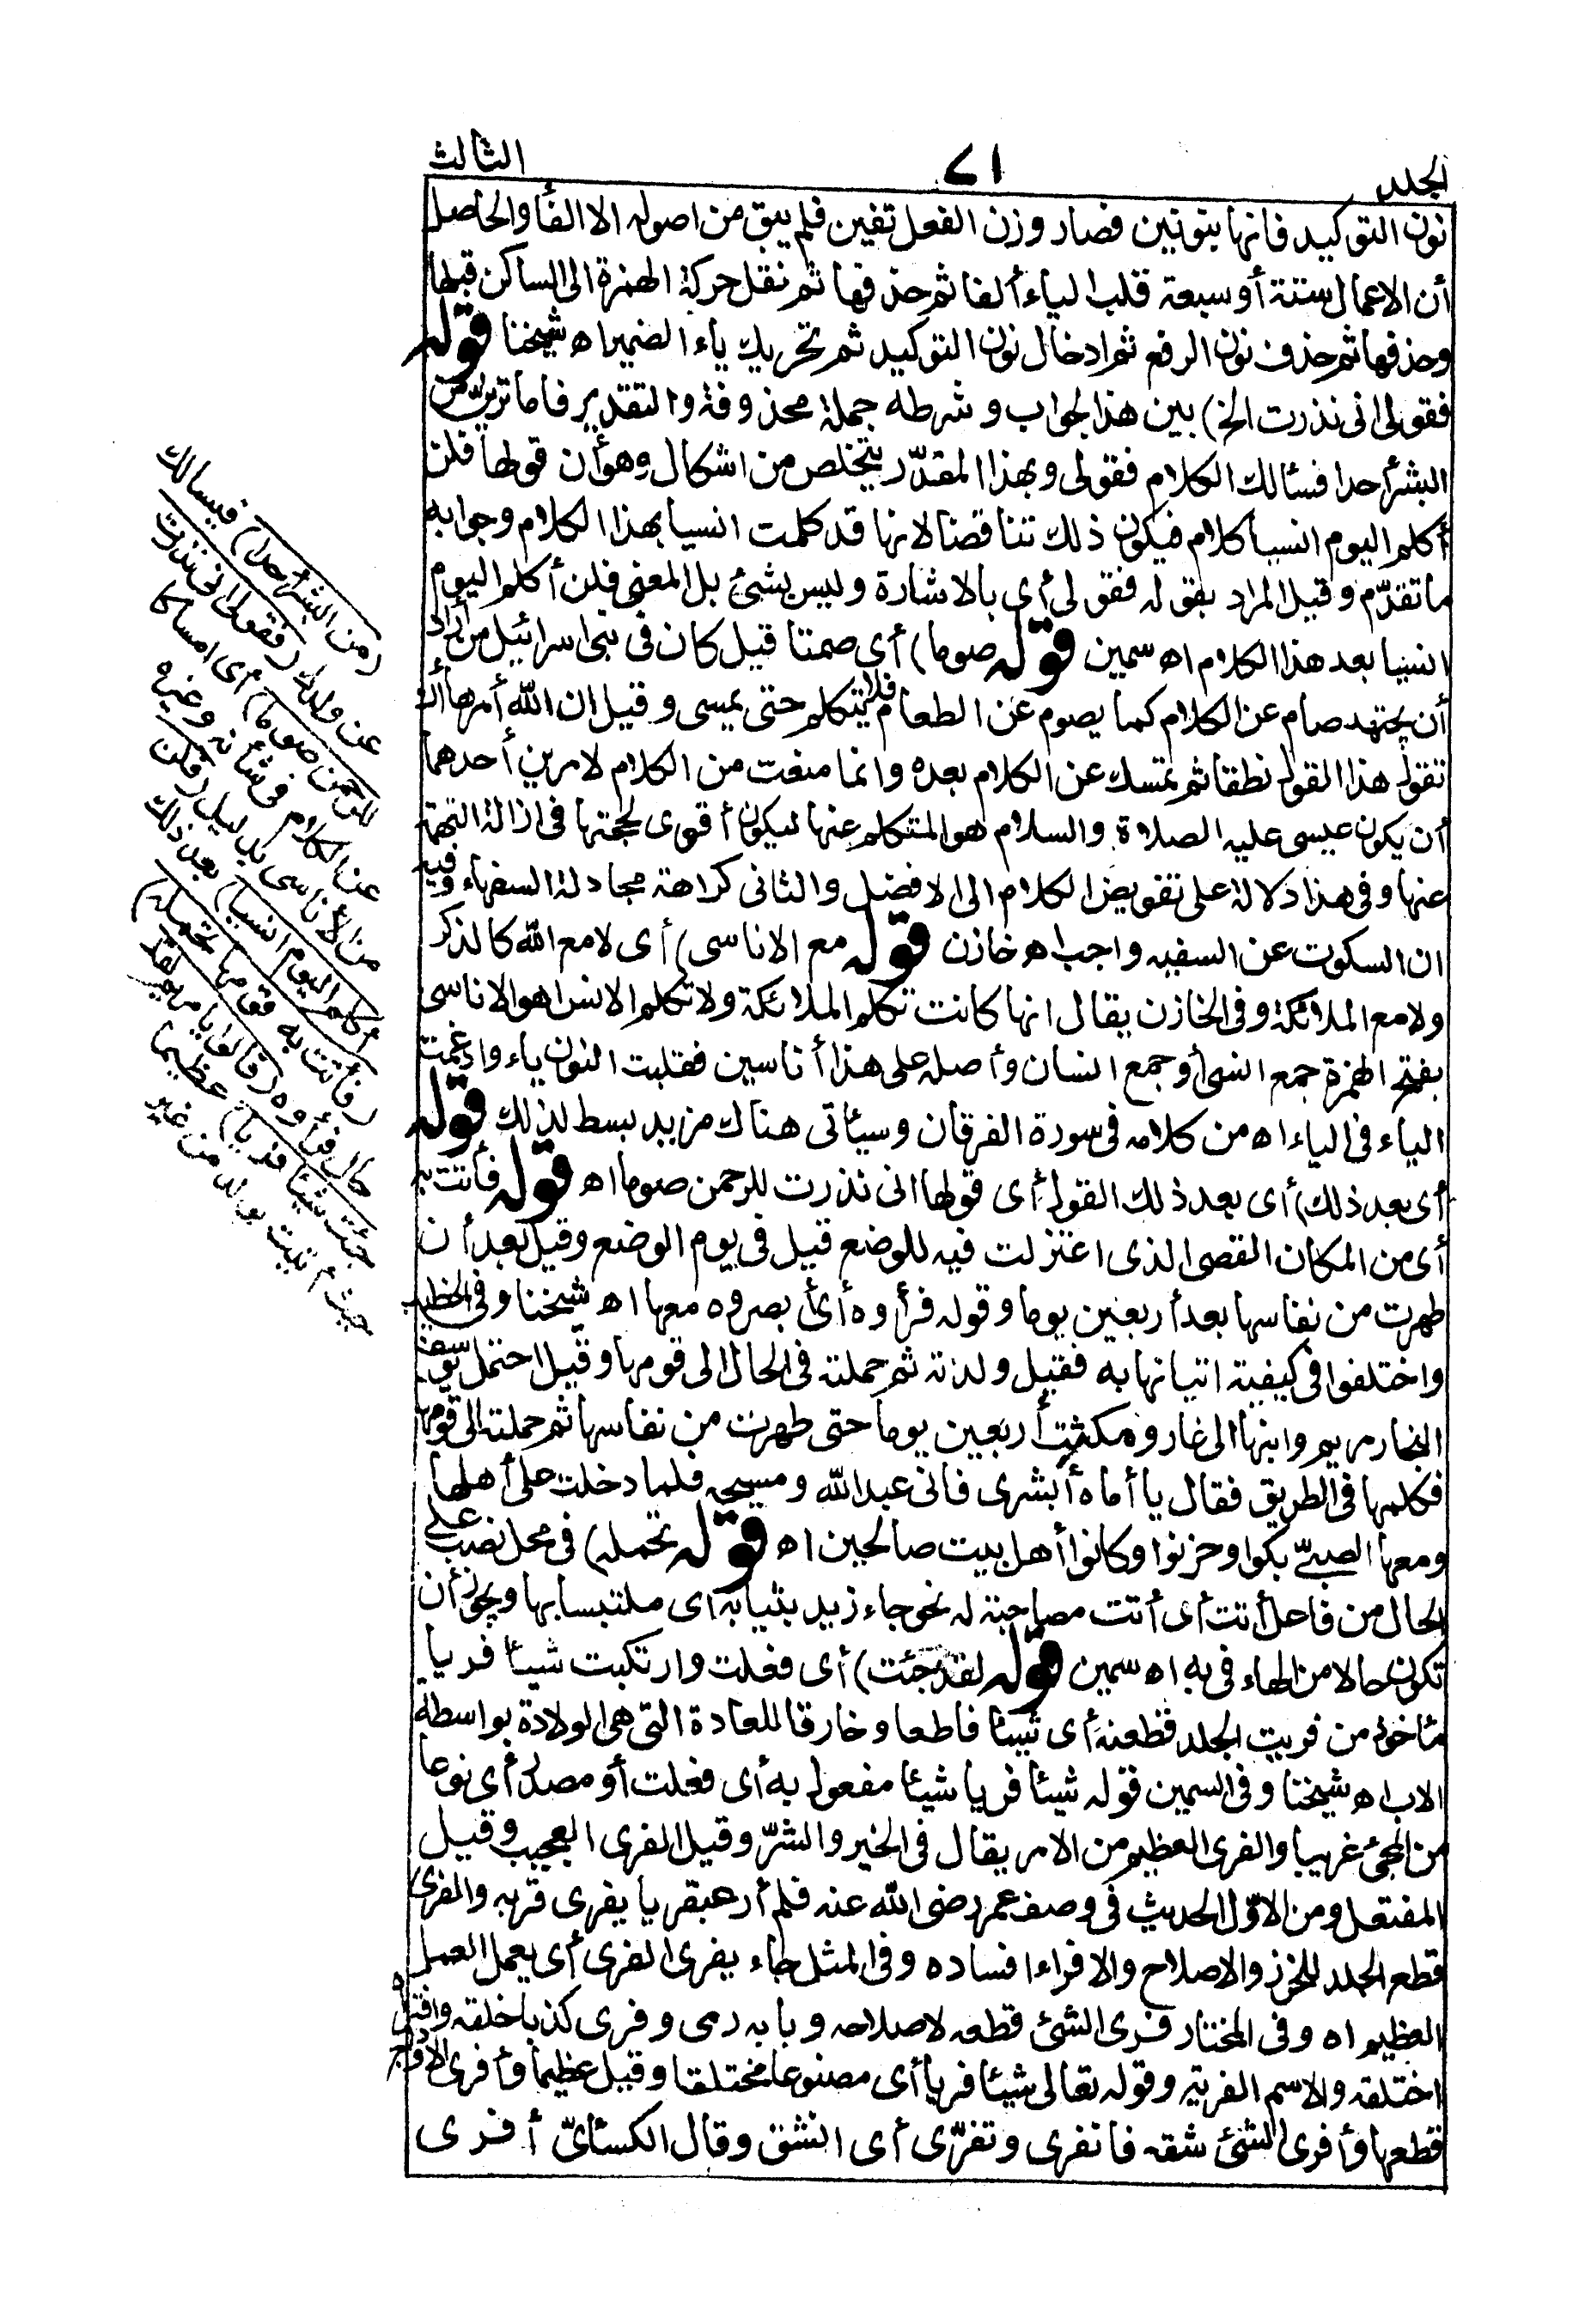 الجلد ٧١ الثالث
نون التوكيد فانها بنونين فصار وزن الفعل تفين فلم يبق من اصوله الا الفا والحاصل
أن الاعمال ستة أو سبعة قلب الياء ألفا ثم حذفها ثم نقل حركة الهمزة الى الساكن قبلها
وحذفها ثم حذف نون الرفع ثم ادخال نون التوكيد ثم تحريك ياء الضمير اه شيخنا قوله
فقولى انى نذرت الخ) بين هذا الجواب وشرطه جملة محذوفة والتقدير فاما ترين من
البشر أحدا فسئالك الكلام فقولى وبهذا المقدّر يتخلص من اشكال وهو أن قولها فلن
أكلم اليوم انسيا كلام فيكون ذلك تناقضا لانها قد كلمت انسيا بهذا الكلام وجوابه
ما تقدّم وقيل المراد بقوله فقولى أى بالاشارة وليس بشئ بل المعنى فلن أكلم اليوم
انسيا بعد هذا الكلام اه سمين قوله صوما) أى صمتا قيل كان فى بنى اسرائيل من أراد
أن يجتهد صام عن الكلام كما يصوم عن الطعام فلا يتكلم حتى يمسى وقيل ان الله أمرها أن
تقول هذا القول نطقا ثم تمسك عن الكلام بعده وانما منعت من الكلام لامرين أحدهما
أن يكون عيسى عليه الصلاة والسلام هو المتكلم عنها ليكون أقوى لحجتها فى ازالة التهمة
عنها وفى هذا دلالة على تفويض الكلام الى الافضل والثانى كراهة مجادلة السفهاء وفيه
ان السكوت عن السفيه واجب اه خازن قوله مع الاناسى) أى لا مع الله كالذكر
ولا مع الملائكة وفى الخازن يقال انها كانت تكلم الملائكة ولا تكلم الانس اه والاناسى
بفتح الهمزة جمع انسى أو جمع انسان وأصله على هذا أناسين فقلبت النون ياء وادغمت
الياء فى الياء اه من كلامه فى سورة الفرقان وسيأتى هناك مزيد بسط لذلك قوله
أى بعد ذلك) أى بعد ذلك القول أى قولها انى نذرت للرحمن صوما اه قوله فأتت به
أى من المكان القصى الذى اعتزلت فيه للوضع قيل فى يوم الوضع وقيل بعد أن
طهرت من نفاسها بعد أربعين يوما وقوله فرأوه أى أبصروه معها اه شيخنا وفى الخطيب
واختلفوا فى كيفية اتيانها به فقيل ولدته ثم حملته فى الحال الى قومها وقيل احتمل يوسف
النجار مريم وابنها الى غار ومكثت أربعين يوما حتى طهرت من نفاسها ثم حملته الى قومها
فكلمها فى الطريق فقال يا أماه أبشرى فانى عبد الله ومسيحه فلما دخلت على أهلها
ومعها الصبىّ بكوا وحزنوا وكانوا أهل بيت صالحين اه قوله تحمله) فى محل نصب على
الحال من فاعل أتت أى أتت مصاحبة له نحو جاء زيد بثيابه اى ملتبسا بها ويجوز أن
تكون حالا من الهاء فى به اه سمين قوله لقد جئت) أى فعلت وارتكبت شيئا فريا
مأخوذ من فريت الجلد قطعته أى شيئا قاطعا وخارقا للعادة التى هى الولادة بواسطة
الاب اه شيخنا وفى السمين قوله شيئا فريا شيئا مفعول به أى فعلت أو مصدر أى نوعا
من المجئ غريبا والفرى العظيم من الامر يقال فى الخير والشرّ وقيل الفرى العجيب وقيل
المفتعل ومن الاوّل الحديث فى وصف عمر رضى الله عنه فلم أر عبقريا يفرى فريه والفرى
قطع الجلد للخرز والاصلاح والافراء افساده وفى المثل جاء يفرى الفرى أى يعمل العمل
العظيم اه وفى المختار فرى الشئ قطعه لاصلاحه وبابه رمى وفرى كذبا خلقه وافتراه
اختلقه والاسم الفرية وقوله تعالى شيئا فريا أى مصنوعا مختلقا وقيل عظيما وأفرى الاوداج
قطعها وأفرى الشئ شقه فانفرى وتفرّى أى انشق وقال الكسائىّ أفرى
(من البشر أحدا) فيسالك
عن ولدك (فقولى انى نذرت
للرحمن صوما) أى امساكا
عن الكلام فى شأنه وغيره
من الأناسى بدليل (فلن
أكلم اليوم انسيا) بعد ذلك
(فأتت به قومها تحمله)
حال فرأوه (قالوا يا مريم لقد
جئت شيئا فريا) عظيما
حيث أتيت بولد من غير